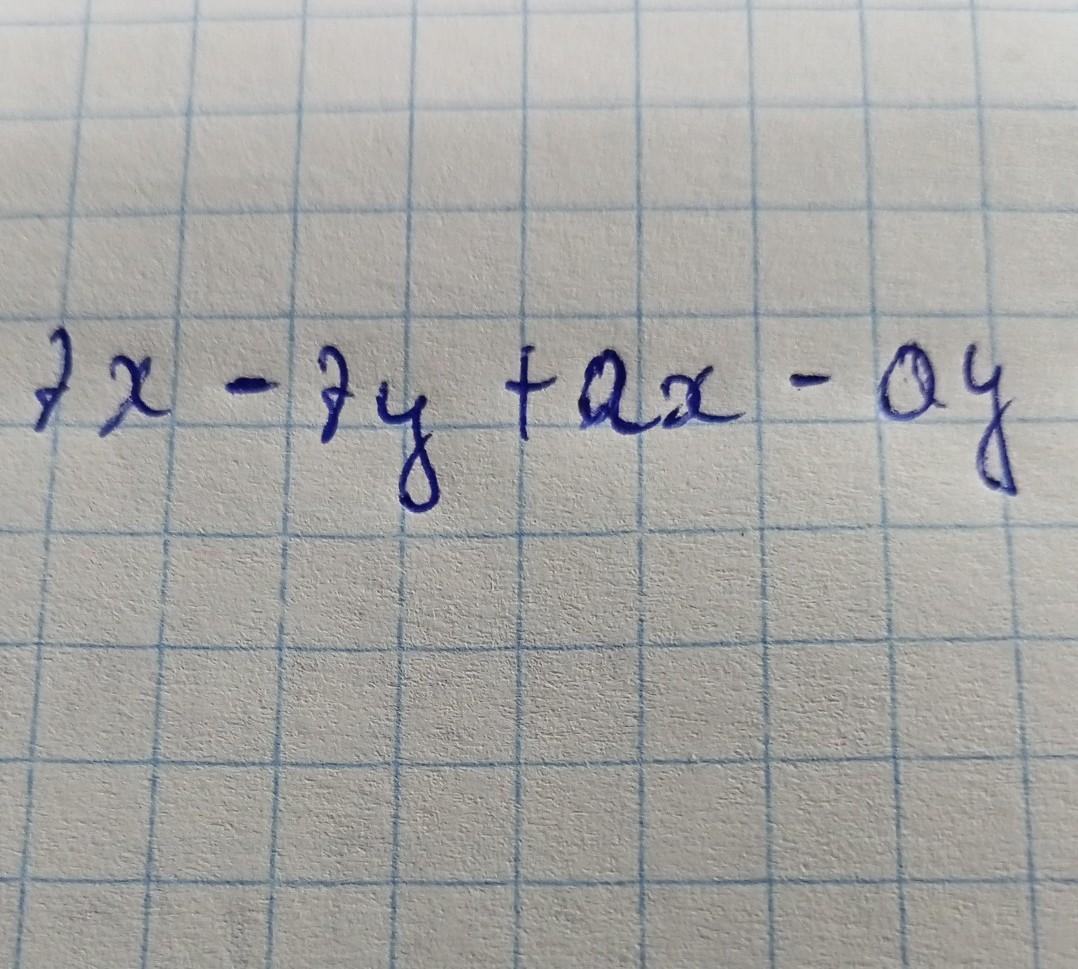 7x - 7y + ax - ay